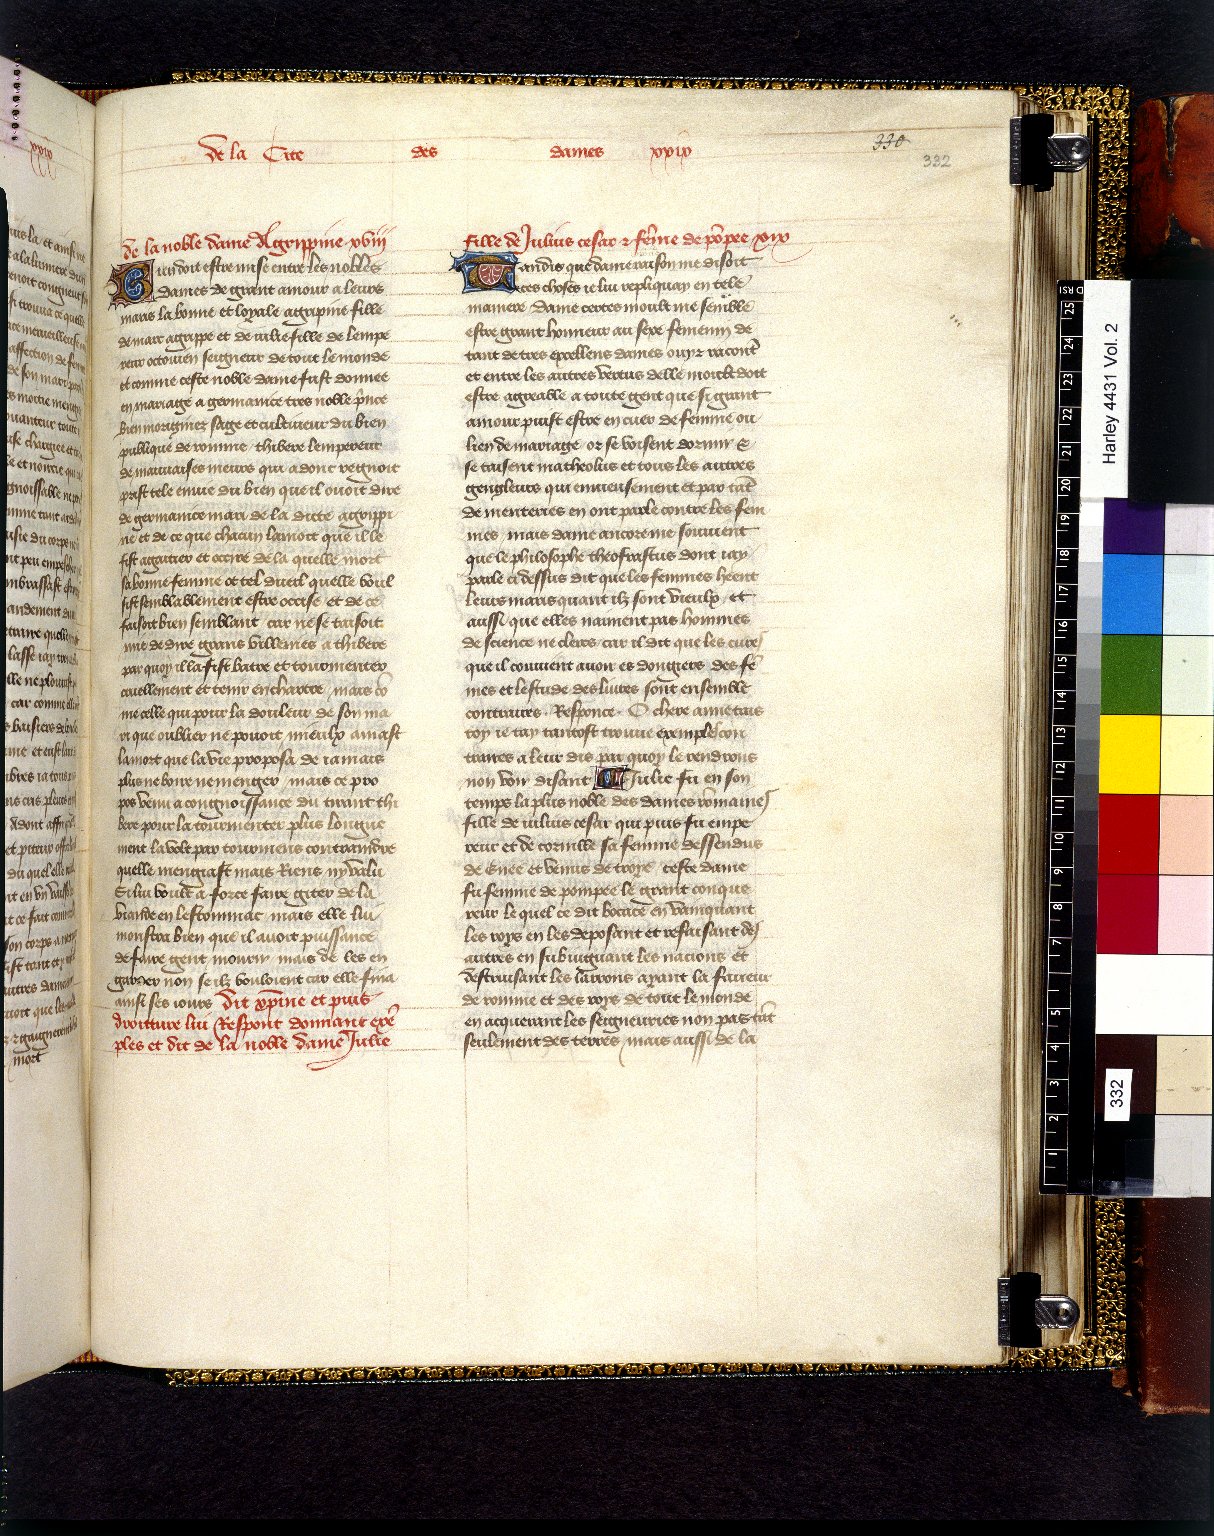 De la Cite des dames xxix
330
332
De la noble dame Agrippine xviii
Bien doit estre mise entre les nobles
dames de grant amour a leurs
maris la bonne et loyale agripine fille
de marc agrippe et de julie fille de lempe
reur octovien seigneur de tout le monde
et comme ceste noble dame fust donnee
en mariage a germanice tres noble p̃nce
bien moriginez sage et cultiveur du bien
publique de romme / thibere lempereur
de mauvaises meurs qui adonc regnoit
prist tele envie du bien que il ouoit dire
de germanice mari de la dicte agrippi
ne et de ce que chacun lamoit que il le
fist agaitier et occire de la quelle mort
sa bonne femme ot tel dueil quelle voul
sist semblablement estre occise et de ce
faisoit bien semblant car ne se taisoit
mie de dire grans villenies a thibere
par quoy il la fist batre et tourmenter
cruellement et tenir en chartre / mais co͂
me celle qui pour la douleur de son ma
ri que oublier ne pouoit mieulx amast
la mort que la vie proposa de iamais
plus ne boire ne menger / mais ce pro
pos venu a congnoissance du tirant thi
bere pour la tourmenter plus longue
ment la volt par tourmens contraindre
quelle mengiast mais Riens ny valu
Si lui voult a force faire giter de la
viande en lestommac / mais elle lui
monstra bien que il auoit puissance
de faire gent mourir mais de les en
garder non se ilz vouloient car elle fina
ainsi ses iours Dit xp̃ine et puis
droitture lui Respont donnant exẽ
ples et dit de la noble dame Julie
fille de Julius cesar ⁊ fẽme de põpee xix
Tandis que dame raison me disoit
ces choses ie lui repliquay en tele
maniere / dame certes moult me sẽble
estre grant honneur au sexe femenin de
tant de tres excellens dames ouyr racontr̃
et entre les autres vertus delle moult doit
estre agreable a toute gent que si grant
amour puist estre en cuer de femme ou
lien de mariage / or se voisent dormir &
se taisent matheolus et tous les autres
gengleurs qui envieusement et par tãt
de menteries en ont parle contre les fem
mes / mais dame ancore me souvient
que le philosophe theofrastus dont iay
parle cy dessus dit que les femmes heent
leurs maris quant ilz sont vieulx / et
aussi que elles naiment pas hommes
de science ne clers / car il dit que les cures
que il convient avoir es dongiers des fẽ
mes et lestude des livres sont ensemble
contraires . Responce . O chere amie tais
toy ie tay tantost trouve exemples con
traires a leur dis par quoy le rendrons
non voir disant Julie fu en son
temps la plus noble des dames rõmaines
fille de iulius cesar qui puis fu empe
reur et de cornille sa femme dessendus
de Enee et venus de troye ceste dame
fu femme de pompee le grant conque
reur le quel ce dit bocace en vainquant
les roys en les deposant et refaisant des
autres en subiuguant les nacions et
destruisant les larrons ayant la faveur
de romme et des roys de tout le monde
en acquerant les seigneuries non pas tãt
seulement des terres mais aussi de la
xxix
mort
Harley 4431 Vol. 2
332
25
24
23
22
21
20
19
18
17
16
15
14
13
12
11
10
9
8
7
6
5
4
3
2
1